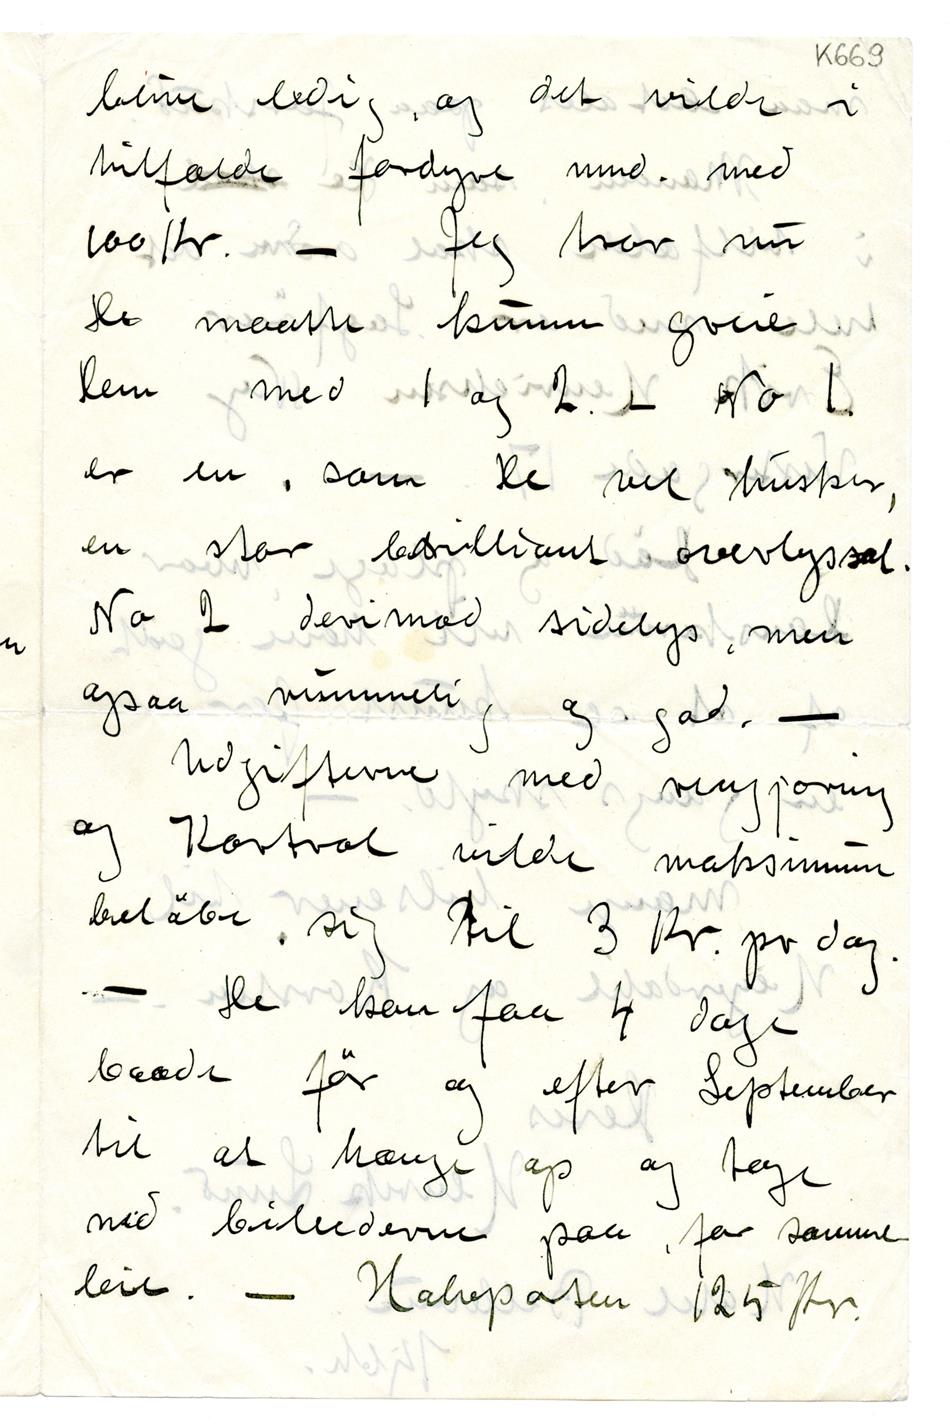 K669
blive ledig, og det vilde i
tilfælde fordyre mnd. med
100 Kr. — Jeg tror nu
De maatte kunne greie
Dem med 1 og 2. — No 1.
er en, som De vel husker,
en stor brilliant overlyssal.
No 2 derimod sidelys, men
ogsaa rummelig og god. —
Udgifterne med rengjøring
og Kontrol vilde maksimum
beløbe sig til 3 Kr. pr dag.
— De kan faa 4 dage
baade før og efter September
til at hænge op og tage
ned billederne paa, for samme
leie. —
125 Kr.